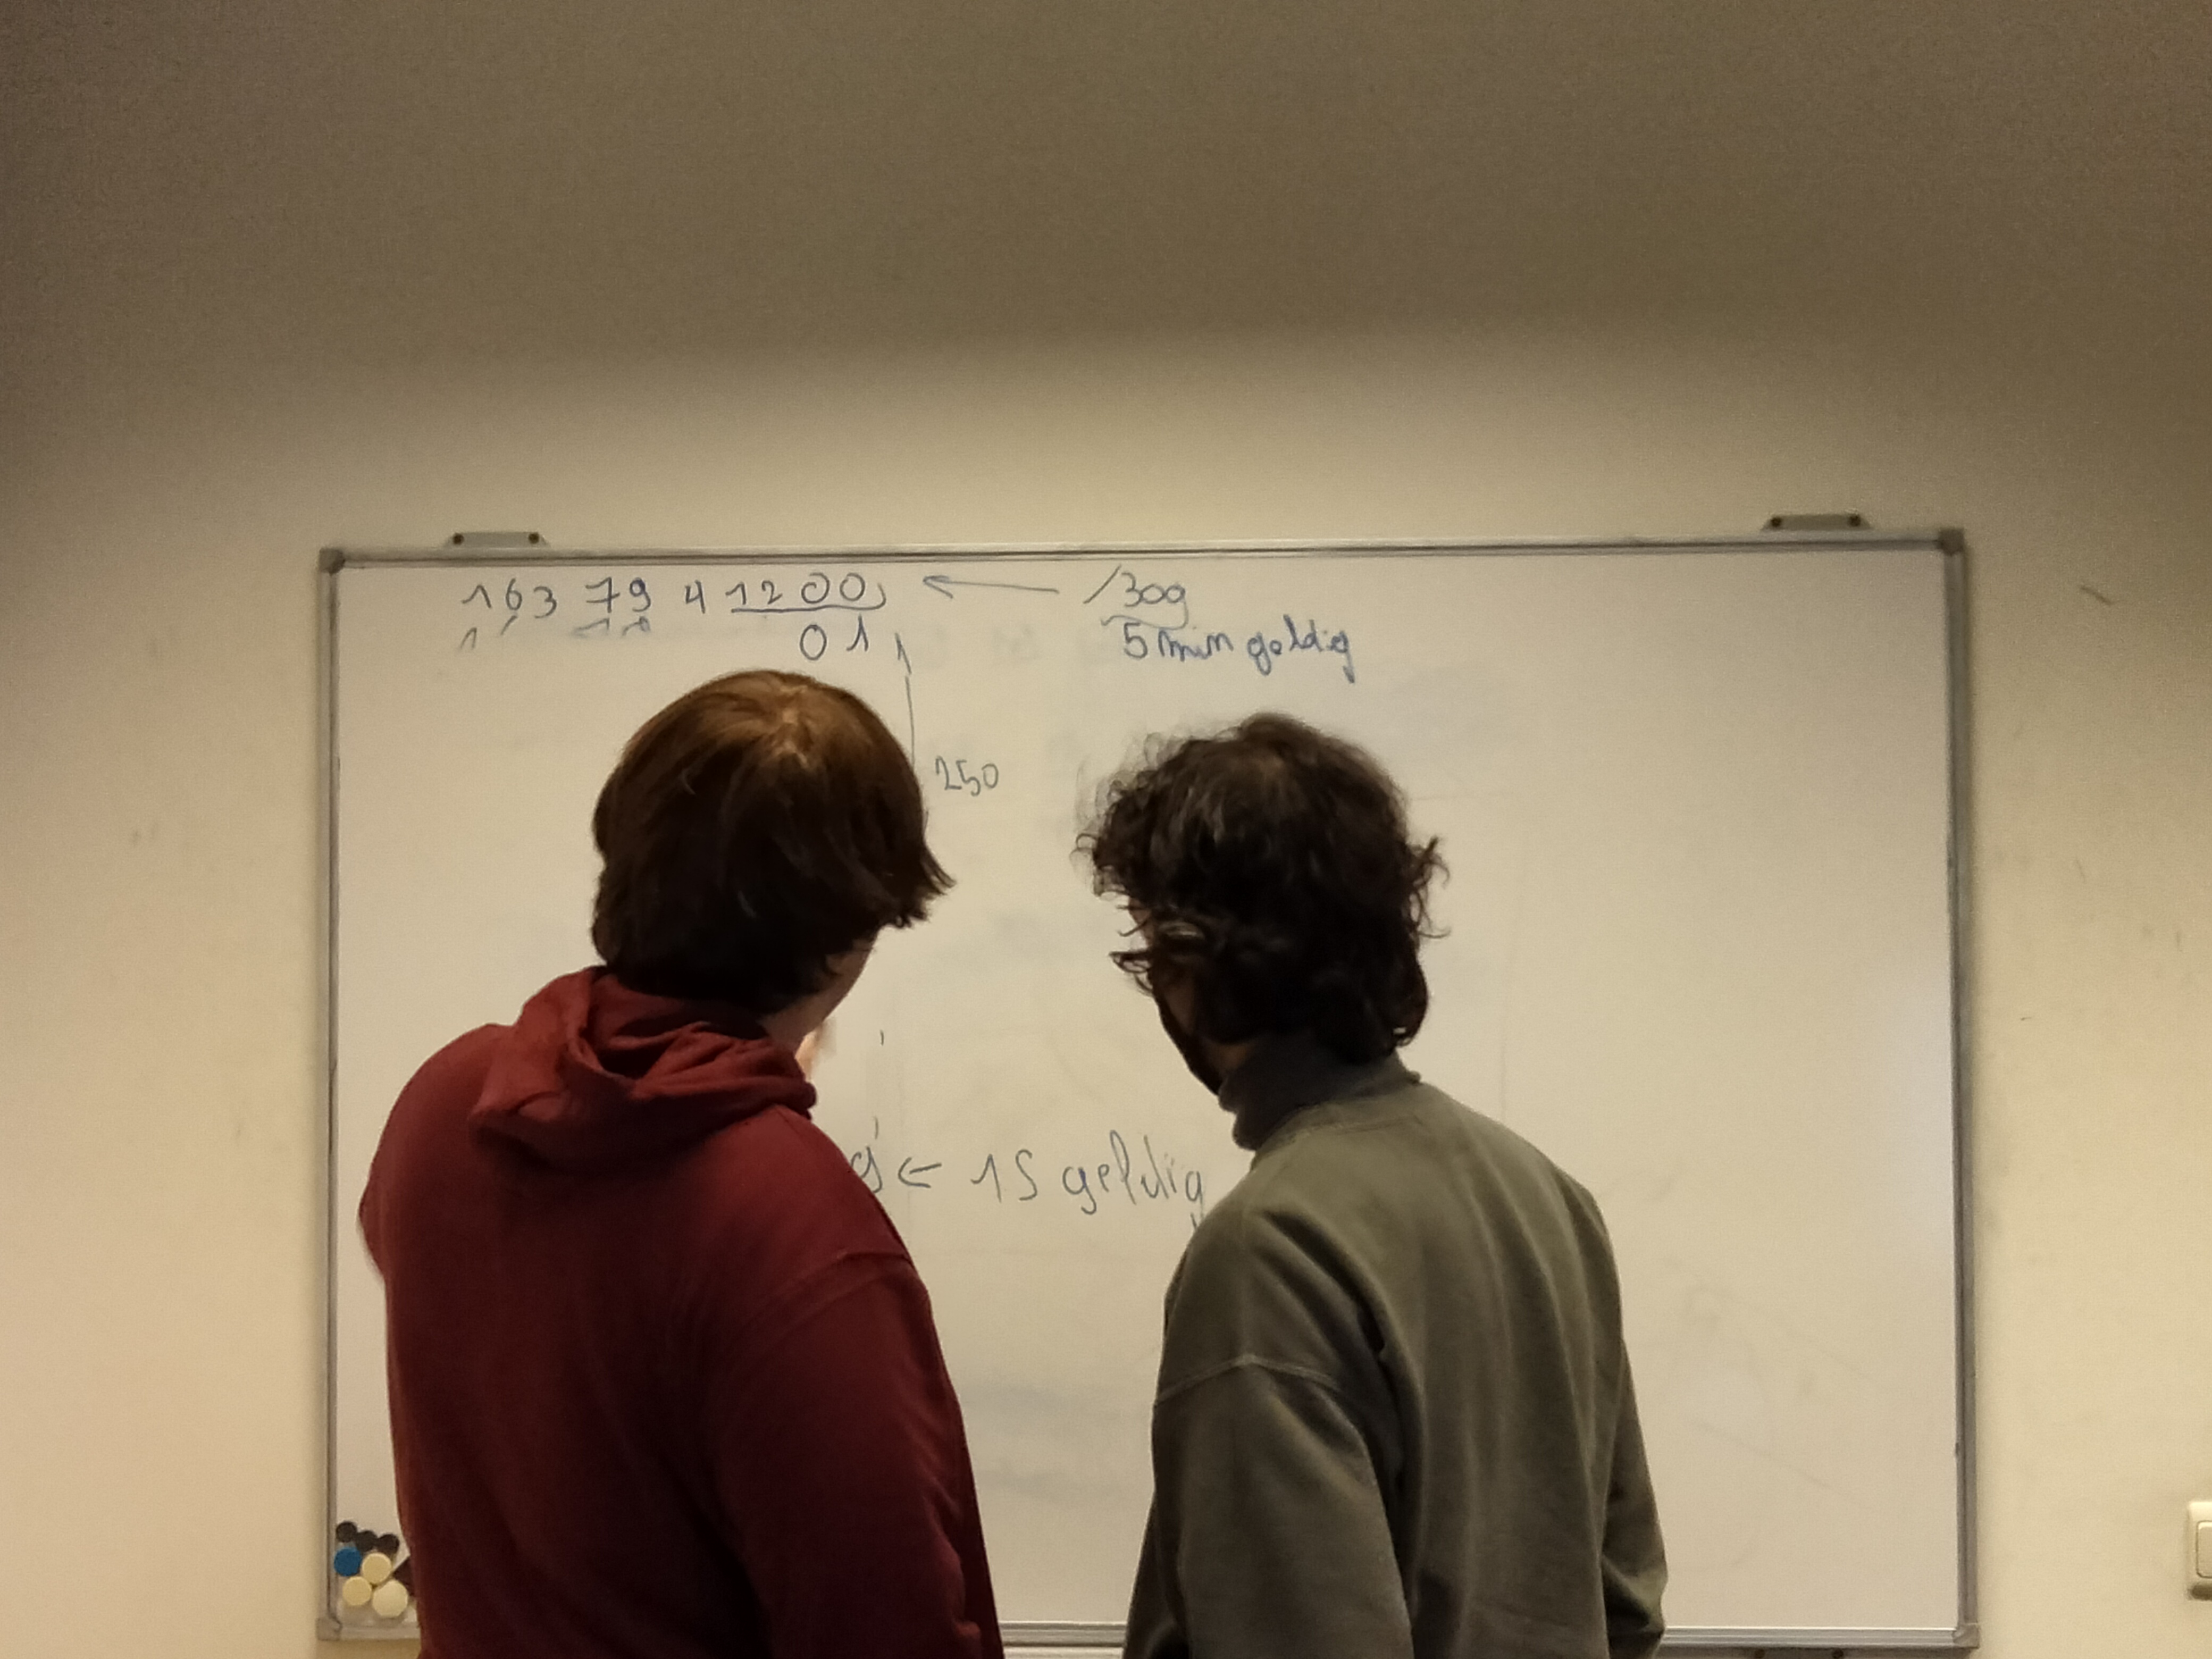 163 79 41200 ← /30g
01 5 min geldig
250
← 15 geldig